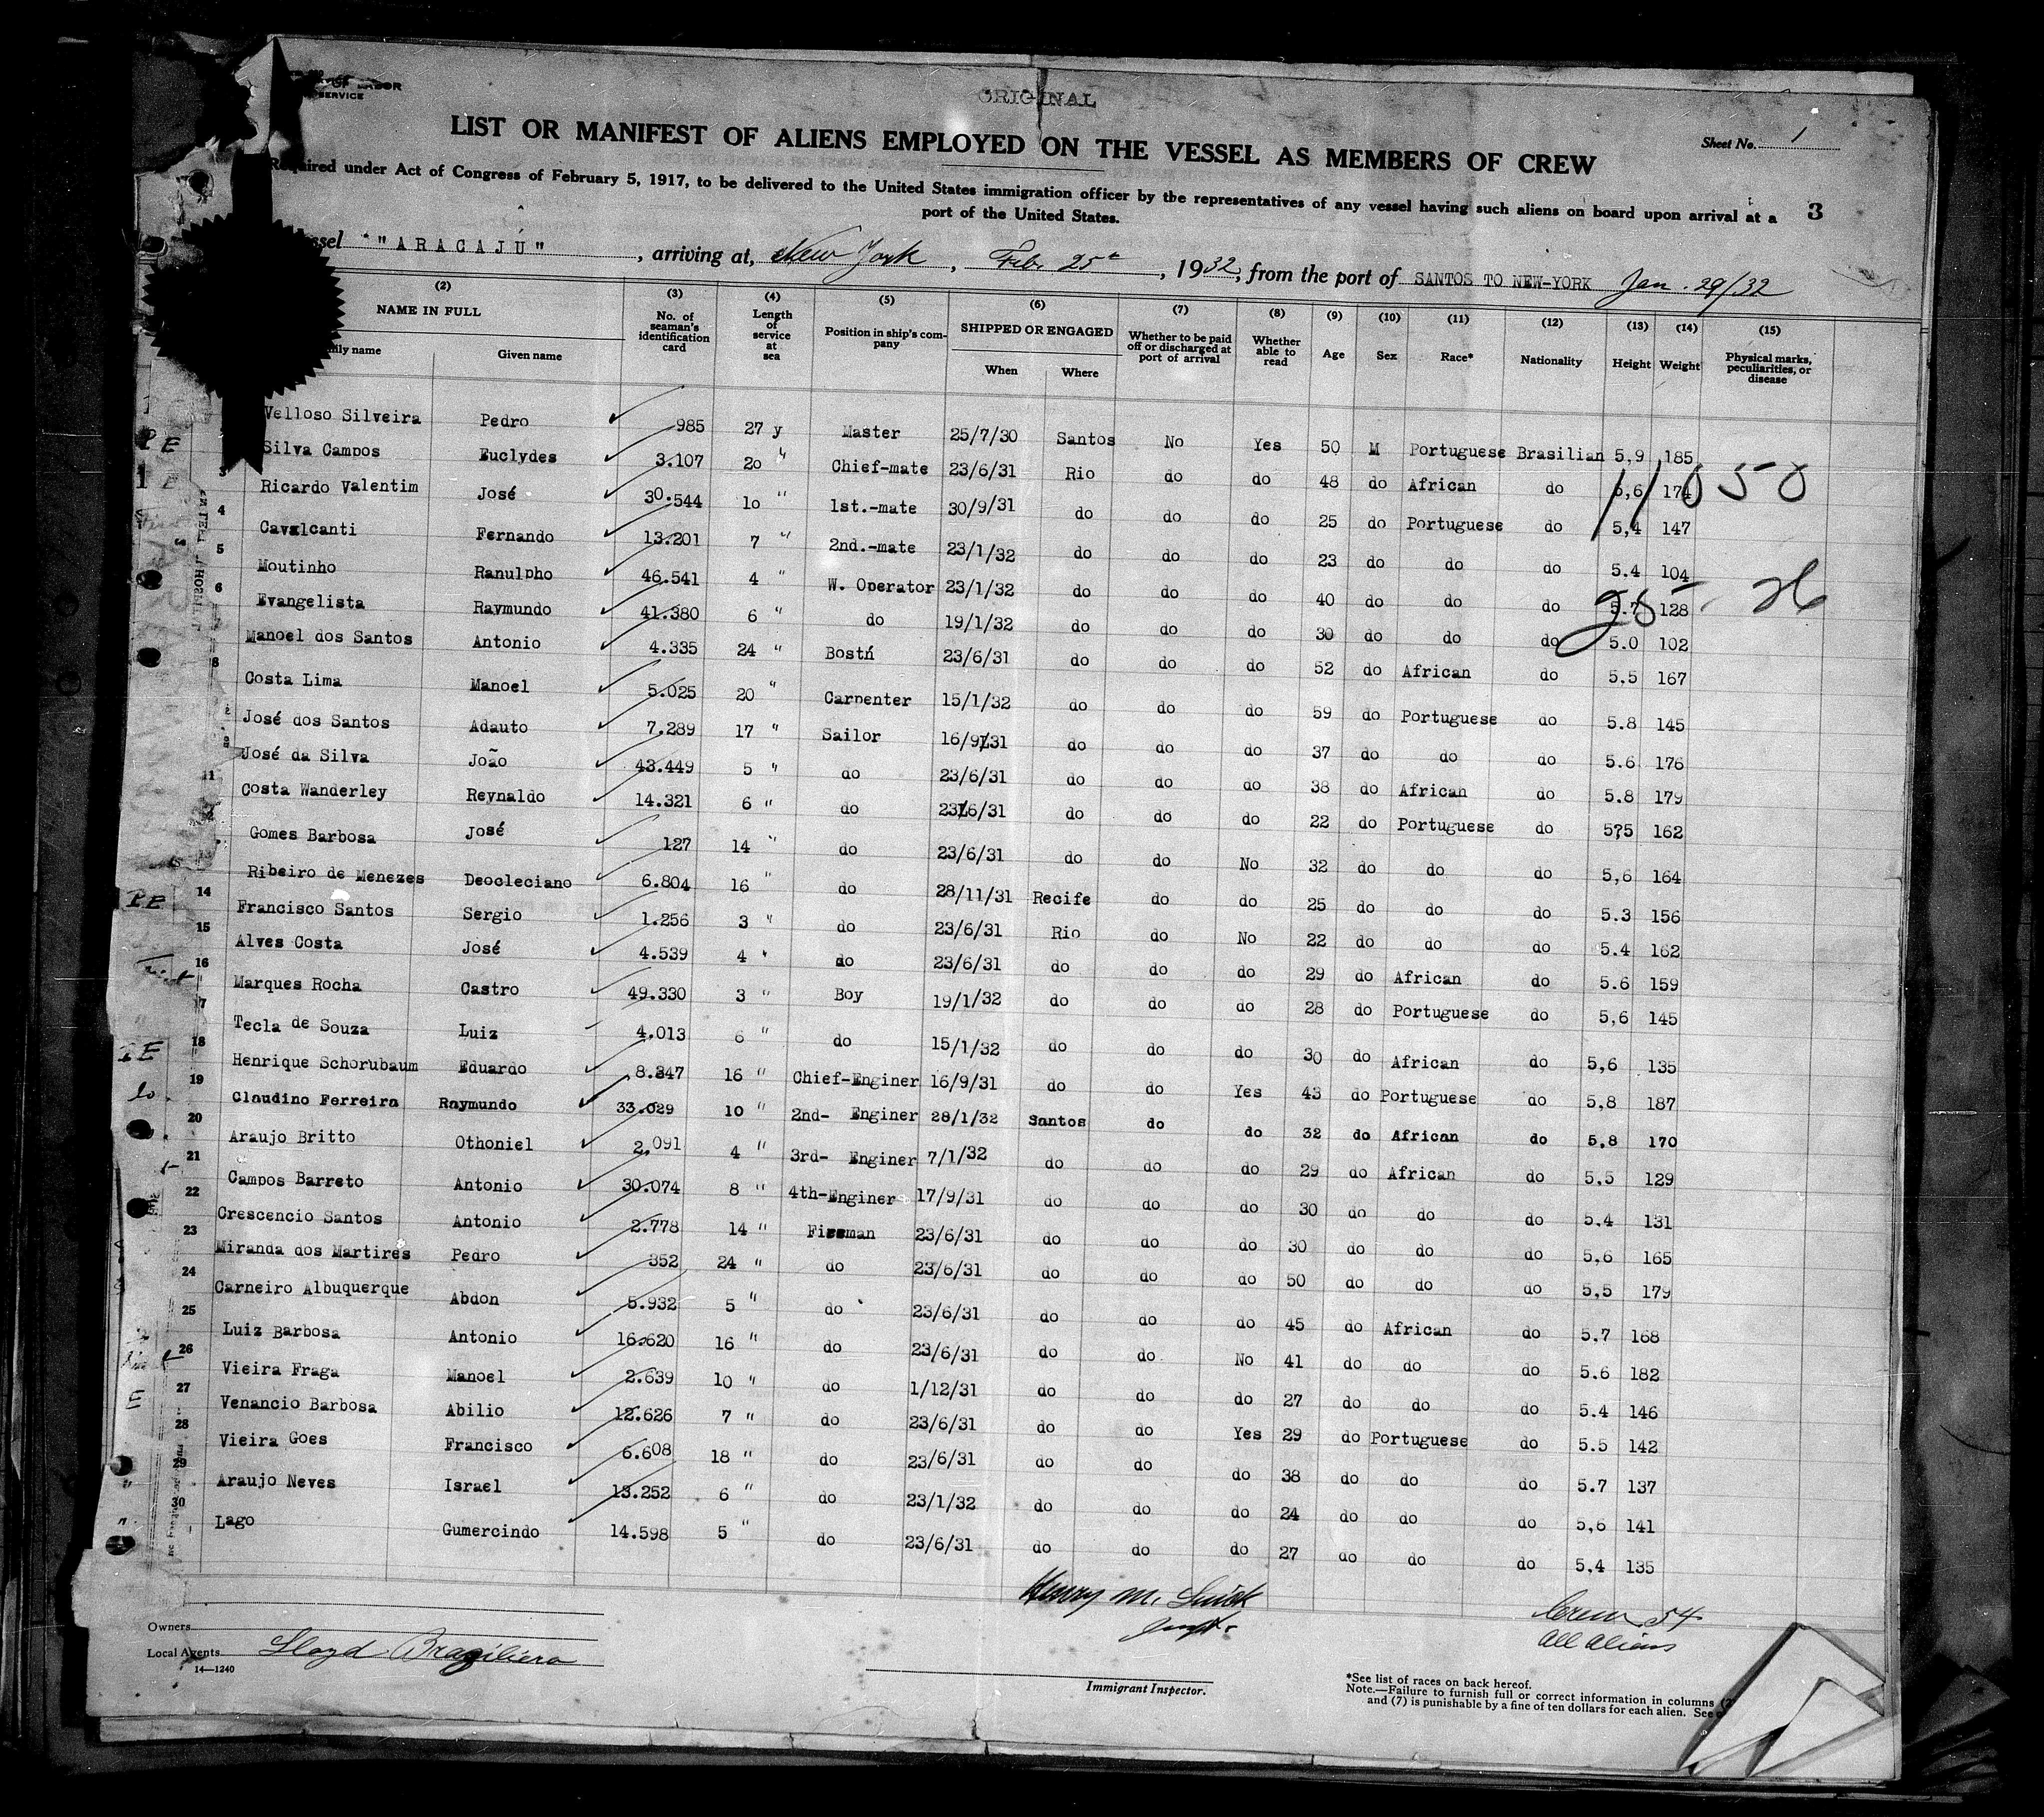 OF LABOR
SERVICE
ORIGINAL
LIST OR MANIFEST OF ALIENS EMPLOYED ON THE VESSEL AS MEMBERS OF CREW
Sheet No. 1
Required under Act of Congress of February 5, 1917, to be delivered to the United States immigration officer by the representatives of any vessel having such aliens on board upon arrival at a
port of the United States.
3
"ARACAJÚ", arriving at, New York, Feb. 25th, 1932, from the port of SANTOS TO NEW-YORK Jan. 29/32
(2) (3) (4) (5) (6) (7) (8) (9) (10) (11) (12) (13) (14) (15)
NAME IN FULL No. of seaman's identification card Length of service at sea Position in ship's company SHIPPED OR ENGAGED Whether to be paid off or discharged at port of arrival Whether able to read Age Sex Race* Nationality Height Weight Physical marks, peculiarities, or disease
Given name When Where
Velloso Silveira Pedro 985 27 y Master 25/7/30 Santos No Yes 50 M Portuguese Brasilian 5,9 185
Silva Campos Euclydes 3.107 20 " Chief-mate 23/6/31 Rio do do 48 do African do 5,6 174
3 Ricardo Valentim José 30.544 10 " 1st.-mate 30/9/31 do do do 25 do Portuguese do 5,4 147
4 Cavalcanti Fernando 13.201 7 " 2nd.-mate 23/1/32 do do do 23 do do do 5.4 104
5 Moutinho Ranulpho 46.541 4 " W. Operator 23/1/32 do do do 40 do do do 5.7 128
6 Evangelista Raymundo 41.380 6 " do 19/1/32 do do do 30 do do do 5.0 102
Manoel dos Santos Antonio 4.335 24 " Bostń 23/6/31 do do do 52 do African do 5.5 167
8 Costa Lima Manoel 5.025 20 " Carpenter 15/1/32 do do do 59 do Portuguese do 5.8 145
José dos Santos Adauto 7.289 17 " Sailor 16/9/31 do do do 37 do do do 5.6 176
José da Silva João 43.449 5 " do 23/6/31 do do do 38 do African do 5.8 179
11 Costa Wanderley Reynaldo 14.321 6 " do 23/6/31 do do do 22 do Portuguese do 5?5 162
Gomes Barbosa José 127 14 " do 23/6/31 do do No 32 do do do 5,6 164
Ribeiro de Menezes Deocleciano 6.804 16 " do 28/11/31 Recife do do 25 do do do 5.3 156
14 Francisco Santos Sergio 1.256 3 " do 23/6/31 Rio do No 22 do do do 5.4 162
15 Alves Costa José 4.539 4 " do 23/6/31 do do do 29 do African do 5.6 159
16 Marques Rocha Castro 49.330 3 " Boy 19/1/32 do do do 28 do Portuguese do 5,6 145
17 Tecla de Souza Luiz 4.013 6 " do 15/1/32 do do do 30 do African do 5,6 135
18 Henrique Schorubaum Eduardo 8.847 16 " Chief-Enginer 16/9/31 do do Yes 43 do Portuguese do 5,8 187
19 Claudino Ferreira Raymundo 33.029 10 " 2nd- Enginer 28/1/32 Santos do do 32 do African do 5.8 170
20 Araujo Britto Othoniel 2.091 4 " 3rd- Enginer 7/1/32 do do do 29 do African do 5.5 129
21 Campos Barreto Antonio 30.074 8 " 4th-Enginer 17/9/31 do do do 30 do do do 5.4 131
22 Crescencio Santos Antonio 2.778 14 " Fireman 23/6/31 do do do 30 do do do 5,6 165
23 Miranda dos Martires Pedro 352 24 " do 23/6/31 do do do 50 do do do 5,5 179
24 Carneiro Albuquerque Abdon 5.932 5 " do 23/6/31 do do do 45 do African do 5.7 168
25 Luiz Barbosa Antonio 16.620 16 " do 23/6/31 do do No 41 do do do 5.6 182
26 Vieira Fraga Manoel 2.639 10 " do 1/12/31 do do do 27 do do do 5.4 146
27 Venancio Barbosa Abilio 12.626 7 " do 23/6/31 do do Yes 29 do Portuguese do 5.5 142
28 Vieira Goes Francisco 6.608 18 " do 23/6/31 do do do 38 do do do 5.7 137
29 Araujo Neves Israel 13.252 6 " do 23/1/32 do do do 24 do do do 5,6 141
30 Lago Gumercindo 14.598 5 " do 23/6/31 do do do 27 do do do 5.4 135
11050
25 - 26
PE
PE
E
Henry M.
Crew 54
All Aliens
Owners
Local Agents Lloyd Braziliero
14—1240
Immigrant Inspector.
*See list of races on back hereof.
Note.—Failure to furnish full or correct information in columns
and (7) is punishable by a fine of ten dollars for each alien. See